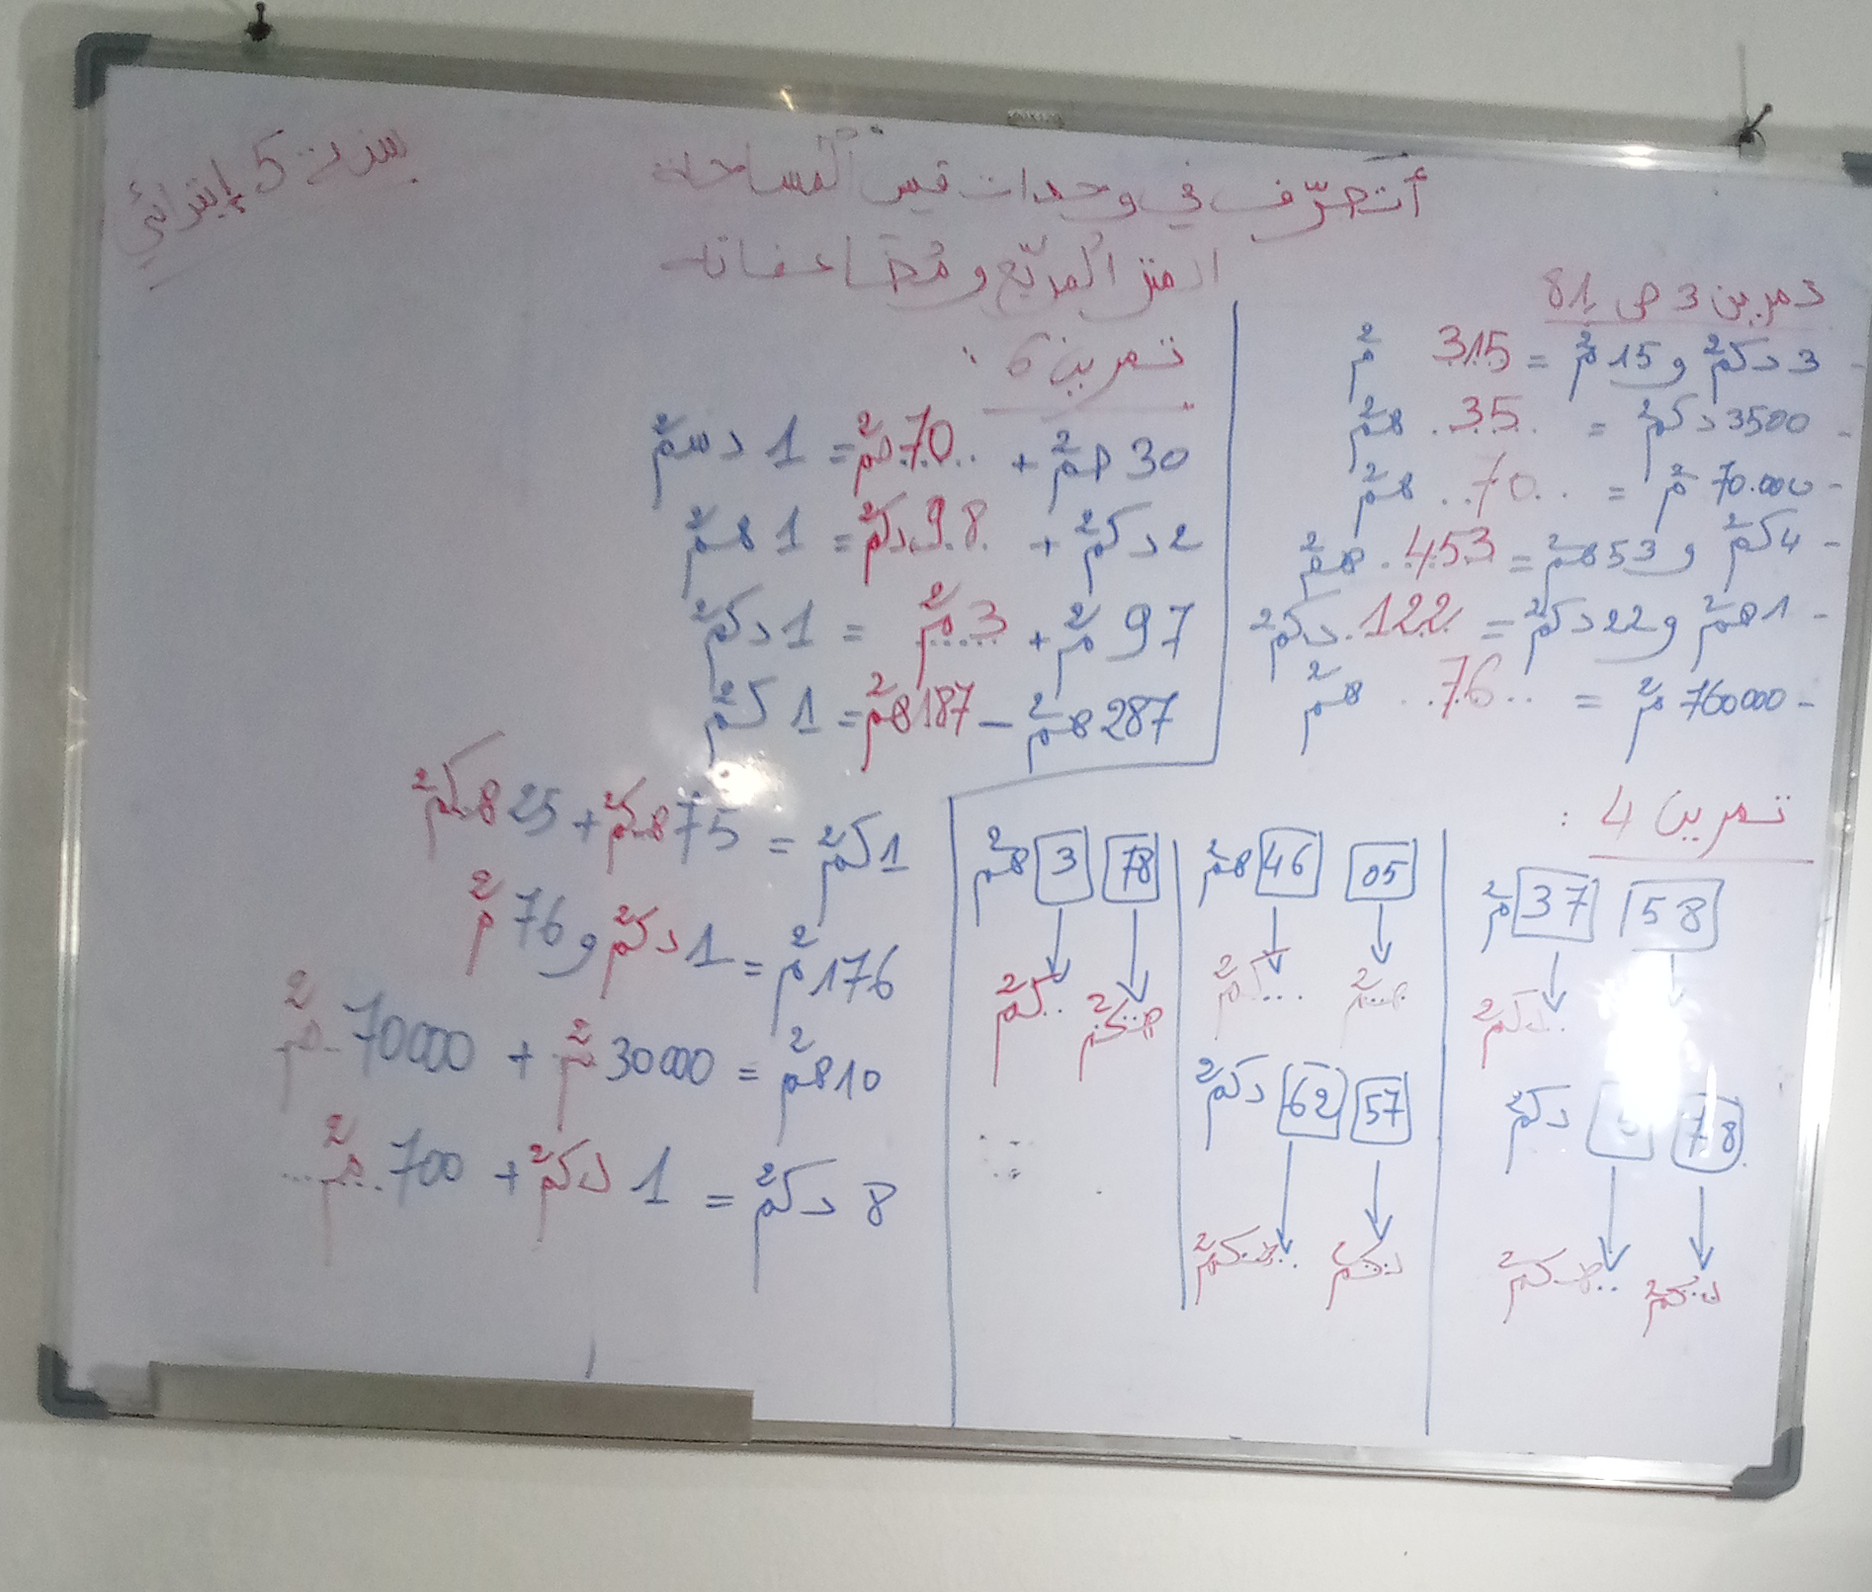 سنة 5 إبتدائي
أتصرّف في وحدات قيس المساحة
المتر المربّع و مُضاعفاته
تمرين 3 ص 81
- 3 دكم² و 15 م² = 315 م²
- 3500 دكم² = ..35.. هم²
- 70.000 م² = ..70.. هم²
- 4 كم² و 53 هم² = 453.. هم²
- 1 هم² و 22 دكم² = 122. دكم²
- 760000 م² = ..76.. هم²
تمرين 6 :
30 م² + ..70 م² = 1 دكم²
2 دكم² + .98. دكم² = 1 هم²
97 م² + 3.... م² = 1 دكم²
287 هم² - 187 هم² = 1 كم²
1 كم² = 75 هكم² + 25 هكم²
176 م² = 1 دكم² و 76 م²
10 هم² = 30000 م² + 70000 م²
8 دكم² = 1 دكم² + 700 م²
تمرين 4 :
58 37 م²
دكم²..
05 46 هم²
كم²...
78 3 هم²
هكم² كم²..
78 دكم²
دكم² هكم²..
57 62 دكم²
دكم² هكم²..